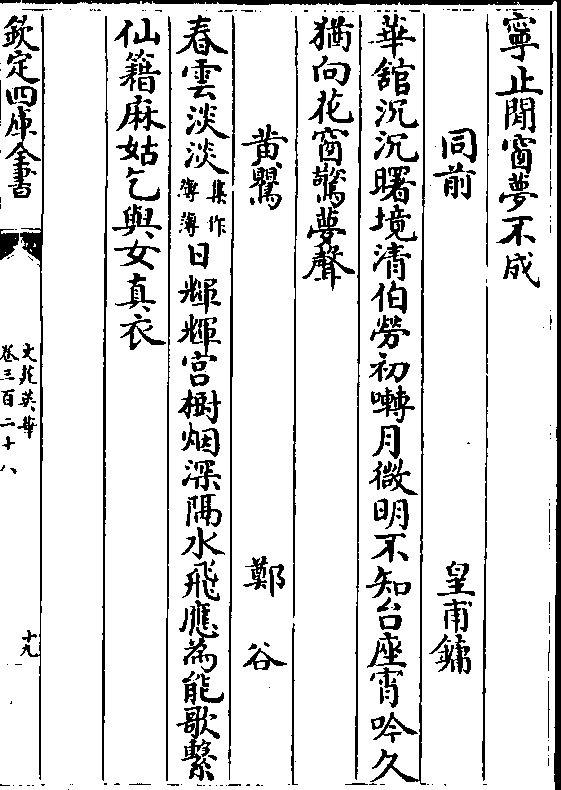 寧止閒窗夢不成
同前 皇甫鏞
華舘沉沉曙境清伯勞初囀月微明不知台座宵吟久
猶向花窗驚夢聲
黄鸎 鄭谷
春雲淡淡集作薄薄日輝輝宫樹烟深隔水飛應為能歌繫
仙籍麻姑乞與女真衣
欽定四庫全書
文苑英華
卷三百二十八
十九